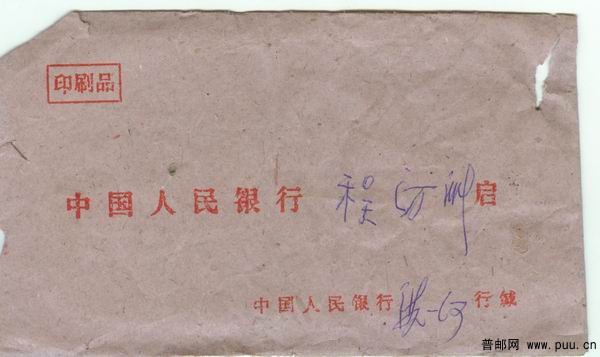 印刷品
中国人民银行 程 启
中国人民银行 行缄
普邮网 www.puu.cn